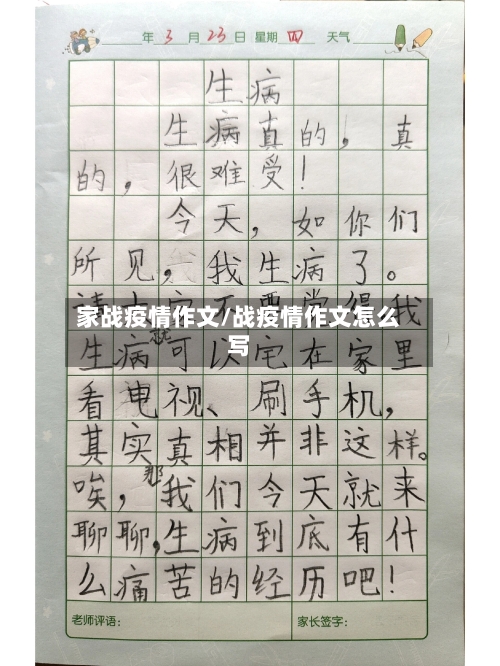 年 3 月 23 日 星期 四 天气
生病
生病真的，真
的，很难受！
今天，如你们
所见，我生病了。
家战疫情作文/战疫情作文怎么
写
生病就可以宅在家里
看电视、刷手机，
其实真相并非这样。
唉，那我们今天就来
聊聊，生病到底有什
么痛苦的经历吧！
老师评语： 家长签字：